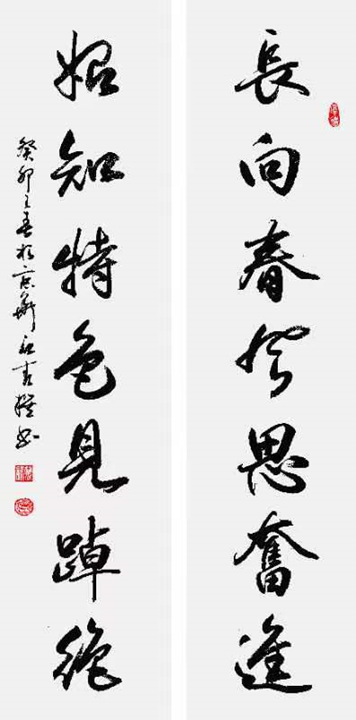 長向春风思奮進
始知特色見踔絶
癸卯之春於京華